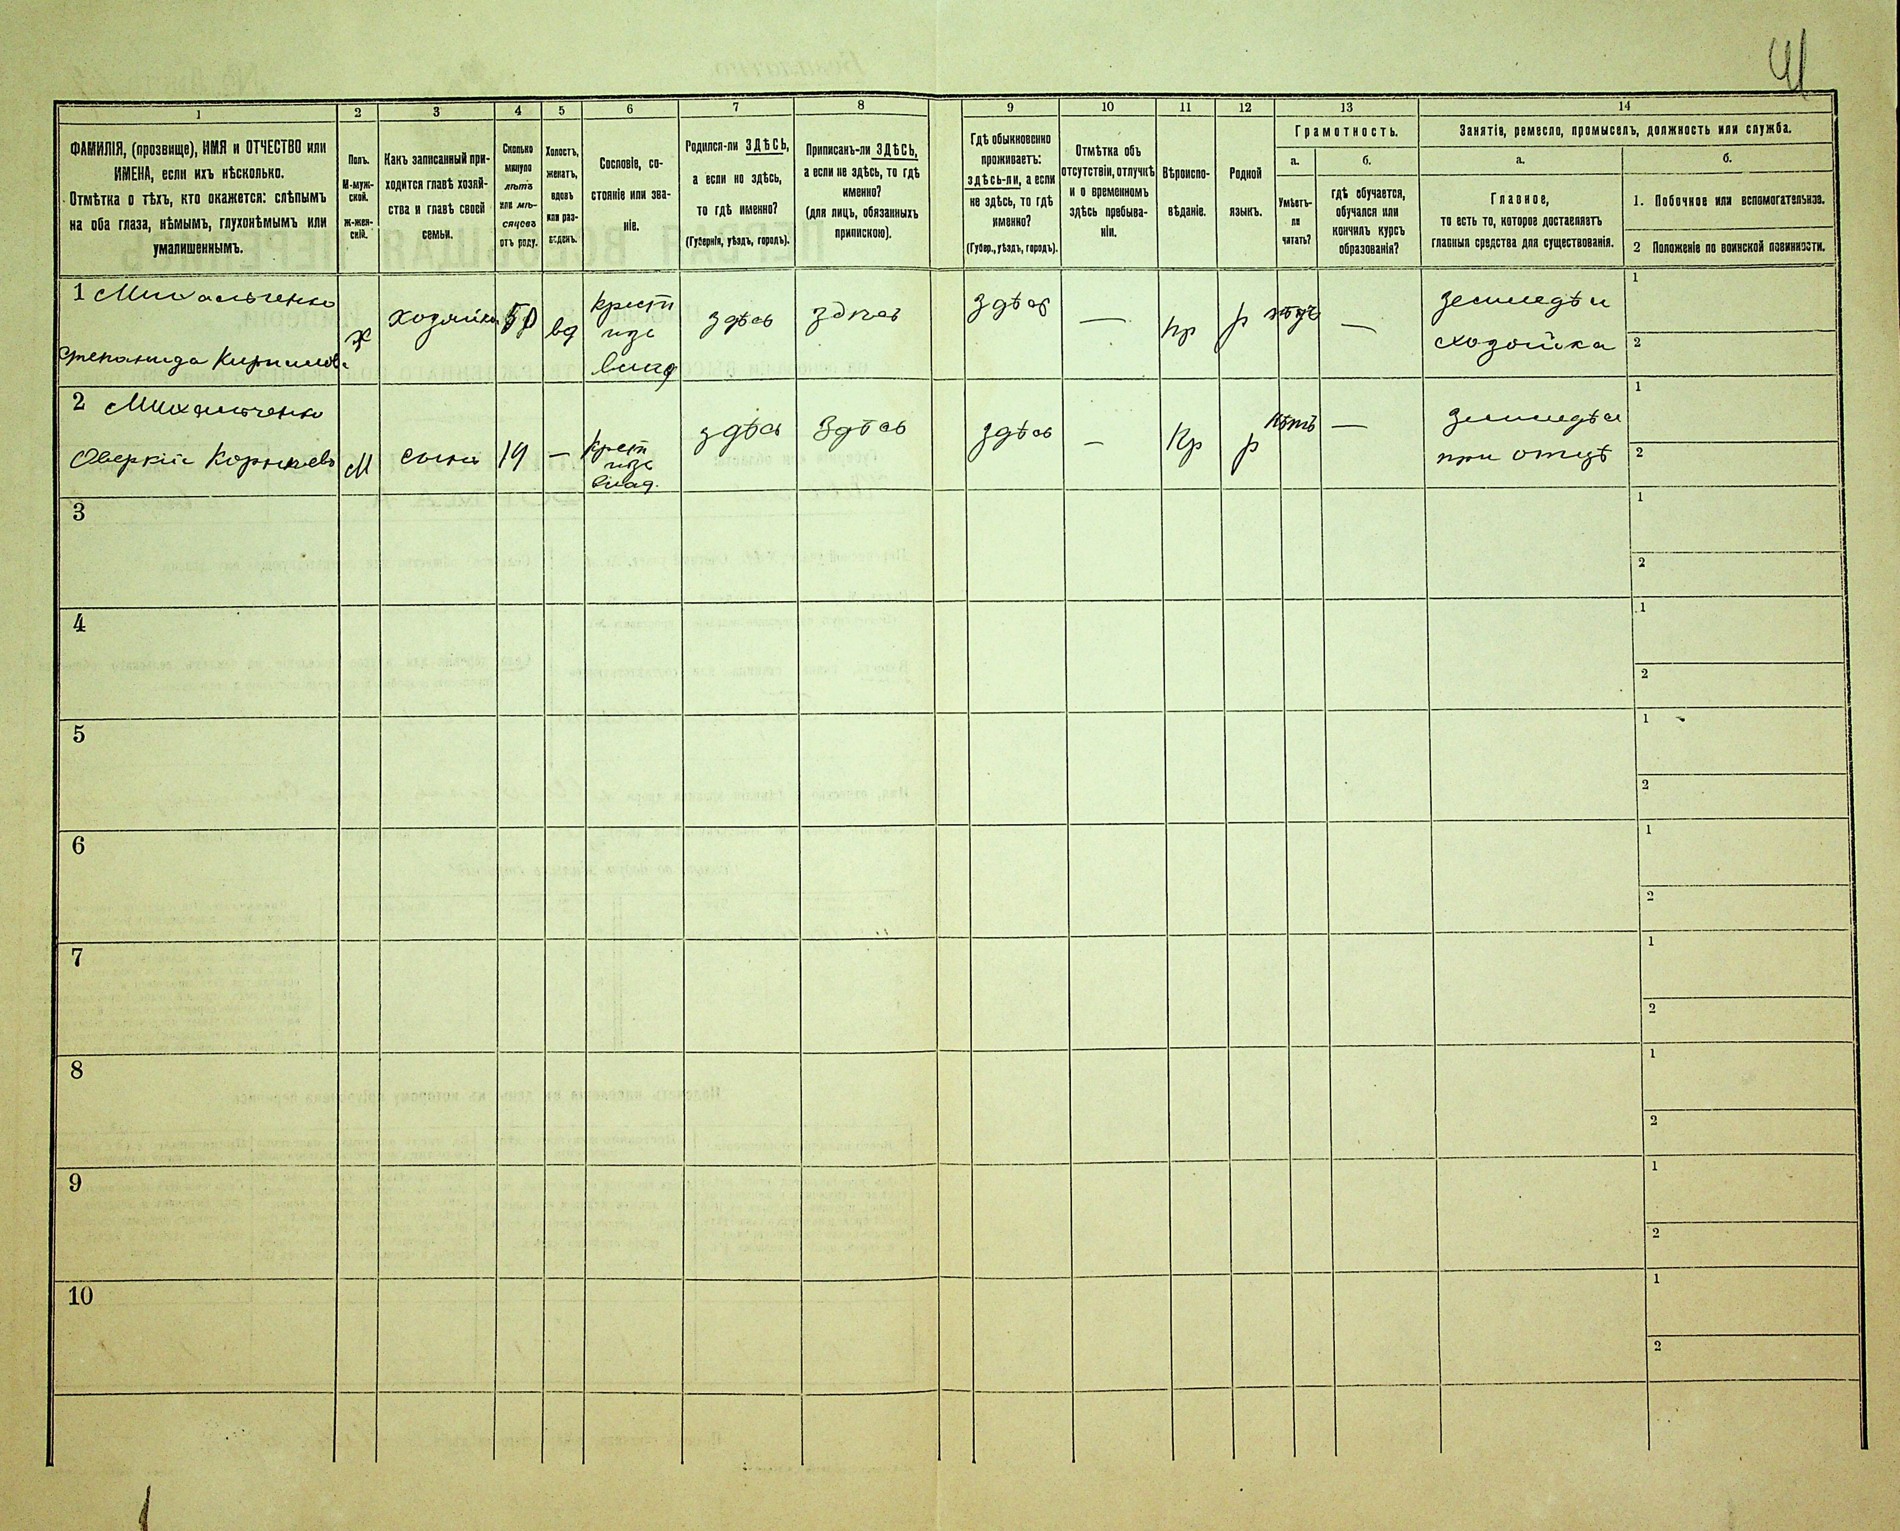 41
1 2 3 4 5 6 7 8 9 10 11 12 13 14
ФАМИЛІЯ, (прозвище), ИМЯ и ОТЧЕСТВО или
ИМЕНА, если ихъ нѣсколько.
Отмѣтка о тѣхъ, кто окажется: слѣпымъ
на оба глаза, нѣмымъ, глухонѣмымъ или
умалишеннымъ.
Полъ.
М-муж-
ской.
ж-жен-
скій.
Какъ записанный при-
ходится главѣ хозяй-
ства и главѣ своей
семьи.
Сколько
минуло
лѣтъ
или мѣ-
сяцевъ
отъ роду.
Холостъ,
женатъ,
вдовъ
или раз-
веденъ.
Сословіе, со-
стояніе или зва-
ніе.
Родился-ли ЗДѢСЬ,
а если не здѣсь,
то гдѣ именно?
(Губернія, уѣздъ, городъ).
Приписанъ-ли ЗДѢСЬ,
а если не здѣсь, то гдѣ
именно?
(для лицъ, обязанныхъ
припискою).
Гдѣ обыкновенно
проживаетъ:
здѣсь-ли, а если
не здѣсь, то гдѣ
именно?
(Губер., уѣздъ, городъ).
Отмѣтка объ
отсутствіи, отлучкѣ
и о временномъ
здѣсь пребыва-
ніи.
Вѣроиспо-
вѣданіе.
Родной
языкъ.
Грамотность.
а. б.
Умѣетъ-
ли
читать?
гдѣ обучается,
обучался или
кончилъ курсъ
образованія?
Занятія, ремесло, промыселъ, должность или служба.
а. б.
Главное,
то есть то, которое доставляетъ
главныя средства для существованія.
1. Побочное или вспомогательное.
2 Положеніе по воинской повинности.
1 Михальченко
Степанида Кирилова
ж
хозяйка
50
вд
крест
изъ
влад
здѣсь
здѣсь
здѣсь
—
пр
р
нѣтъ
—
земледѣл
хозяйка
1
2
2 Михальченко
Оверкій Корнѣевъ
М
сынъ
19
—
крест
изъ
влад.
здѣсь
здѣсь
здѣсь
—
пр
р
нѣтъ
—
земледѣл
при отцѣ
1
2
3
1
2
4
1
2
5
1
2
6
1
2
7
1
2
8
1
2
9
1
2
10
1
2